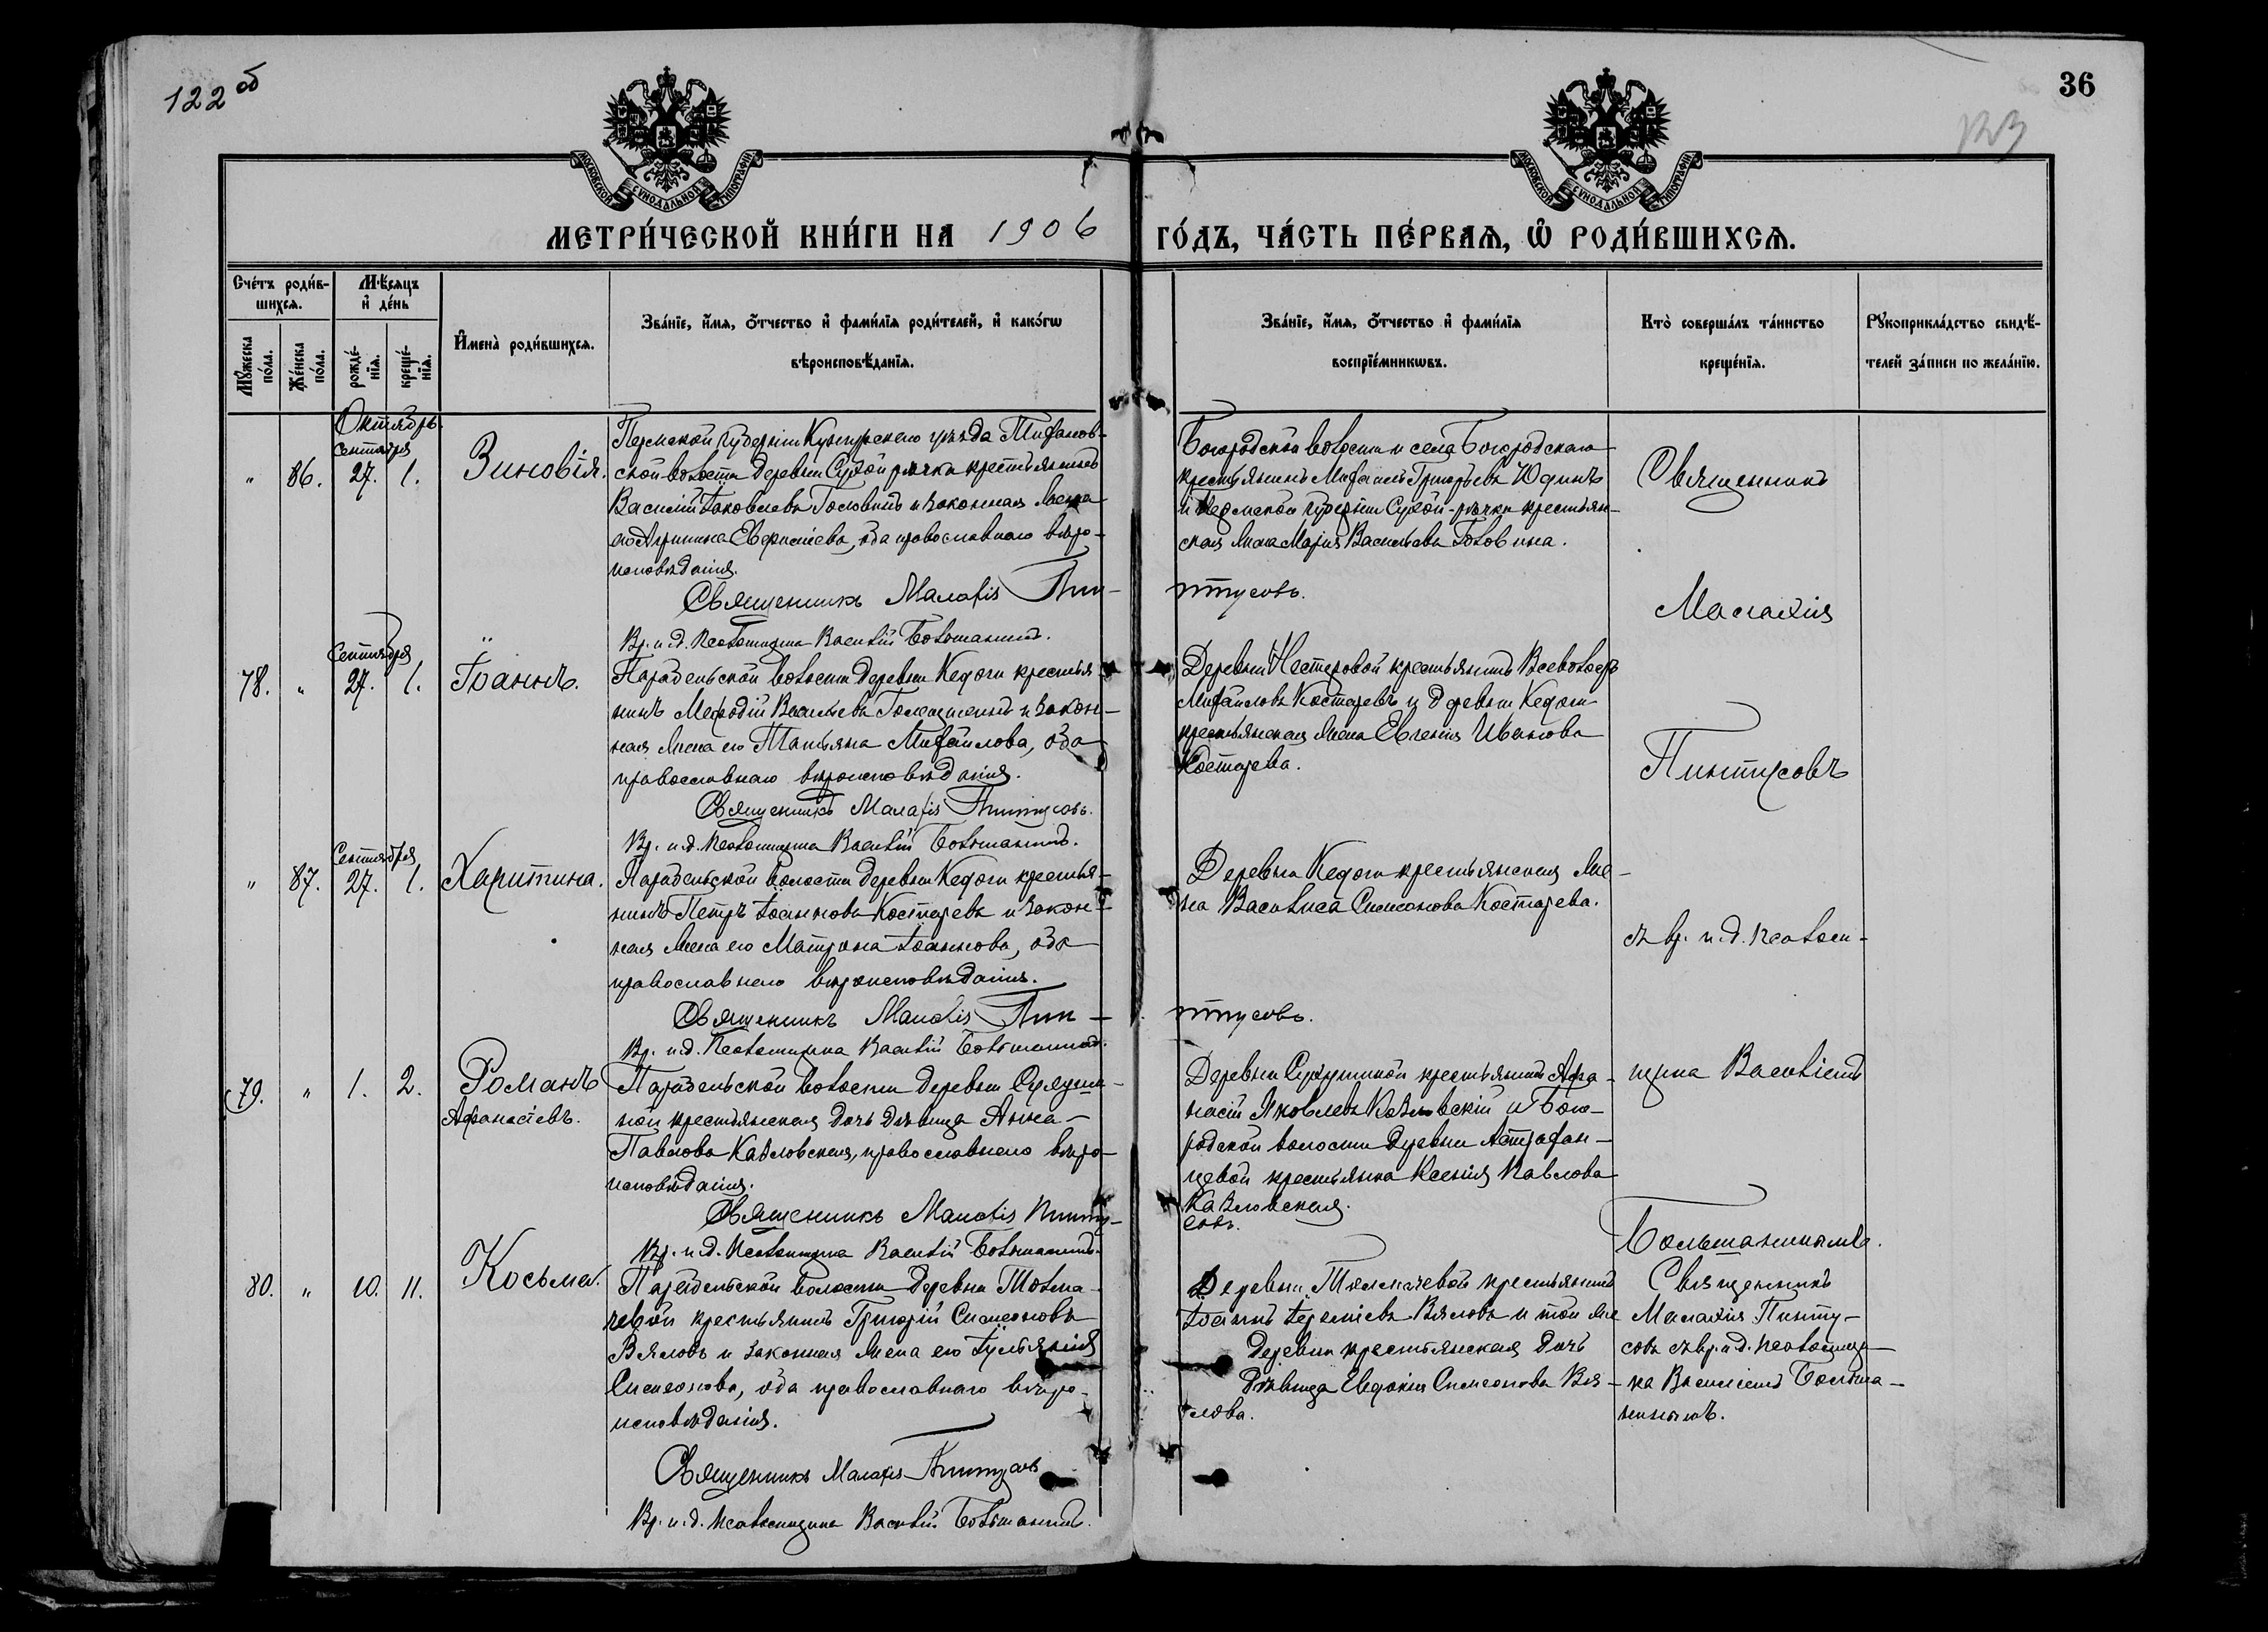 122 об
36
123
МОСКОВСКОЙ СѴНОДАЛЬНОЙ ТИПОГРАФІИ
МОСКОВСКОЙ СѴНОДАЛЬНОЙ ТИПОГРАФІИ
МЕТРИ́ЧЕСКОЙ КНИ́ГИ НА 1906 ГО́ДЪ, ЧА́СТЬ ПЕ́РВАѦ, Ѡ РОДИ́ВШИХСѦ.
Сче́тъ роди́в-
шихсѧ.
Мꙋ́жеска по́ла.
Же́нска по́ла.
Мѣ́сяцъ
и҆ де́нь
рожде́-
нїѧ.
креще́-
нїѧ.
И҆мена̀ роди́вшихсѧ.
Зва́нїе, и҆́мѧ, ѻ҆́тчество и҆ фами́лїѧ роди́телей, и҆ како́гѡ
вѣроисповѣ́данїѧ.
Зва́нїе, и҆́мѧ, ѻ҆́тчество и҆ фами́лїѧ
воспрїе́мникѡвъ.
Кто̀ соверша́лъ та́инство
креще́нїѧ.
Рꙋкоприкла́дство свидѣ́-
телей за́писи по жела́нїю.
Октябрь.
Сентября
" 86. 27. 1. Зиновія.
Пермской губерніи Кунгурскаго уѣзда Тиханов-
ской волости деревни Сухой рѣчки крестьянинъ
Василій Іаковлевъ Головинъ и законная жена
его Агрипина Евфиміева, оба православнаго вѣро-
исповѣданія.
Священникъ Малахія Пин-
Вр. и.д. псаломщика Василій Большанинъ.
Богородской волости и села Богородскаго
крестьянинъ Михаилъ Григорьевъ Юдинъ
и Пермской губерніи Сухой-рѣчки крестьян-
ская жена Марія Васильева Головина.
тусовъ.
Священникъ
Малахія
Пинтусовъ
съ вр. и.д. псалом-
щика Василіемъ
Большанинымъ.
Сентября
78. " 27. 1. Іоаннъ.
Парабельской волости деревни Кедоги крестья-
нинъ Мефодій Васильевъ Голещихинъ и закон-
ная жена его Татьяна Михаилова, оба
православнаго вѣроисповѣданія.
Священникъ Малахія Пинтусовъ.
Вр. и.д. псаломщика Василій Большанинъ.
Деревни Нестеровой крестьянинъ Всеволодъ
Михаиловъ Костаревъ и деревни Кедоги
крестьянская жена Евгенія Иванова
Костарева.
Сентября
" 87. 27. 1. Харитина.
Парабельской волости деревни Кедоги крестья-
нинъ Петръ Іоанновъ Костаревъ и закон-
ная жена его Матрона Іоаннова, оба
православнаго вѣроисповѣданія.
Священникъ Малахія Пин-
Вр. и.д. псаломщика Василій Большанинъ.
Деревни Кедоги крестьянская же-
на Васильса Симеонова Костарева.
тусовъ.
79. " 1. 2. Романъ
Афанасіевъ.
Парабельской волости деревни Сухуши-
ной крестьянская дочь дѣвица Анна
Павлова Казловская, православнаго вѣро-
исповѣданія.
Священникъ Малахія Пинту-
Вр. и.д. псаломщика Василій Большанинъ.
Деревни Сухушиной крестьянинъ Афа-
насій Яковлевъ Козловскій и Бого-
родской волости деревни Астрахан-
цевой крестьянка Ксенія Павлова
Казловская.
совъ.
80. " 10. 11. Косьма.
Парабельской волости деревни Толма-
чевой крестьянинъ Григорій Симеоновъ
Вяловъ и законная жена его Іульянія
Симеонова, оба православнаго вѣро-
исповѣданія.
Священникъ Малахія Пинтусовъ
Вр. и.д. псаломщика Василій Большанинъ.
Деревни Толмачевой крестьянинъ
Іоаннъ Іереміевъ Вяловъ и той же
деревни крестьянская дочь
дѣвица Евдокія Симеонова Вя-
лова.
Священникъ
Малахія Пинту-
совъ съ вр. и.д. псаломщи-
ка Василіемъ Больша-
нинымъ.